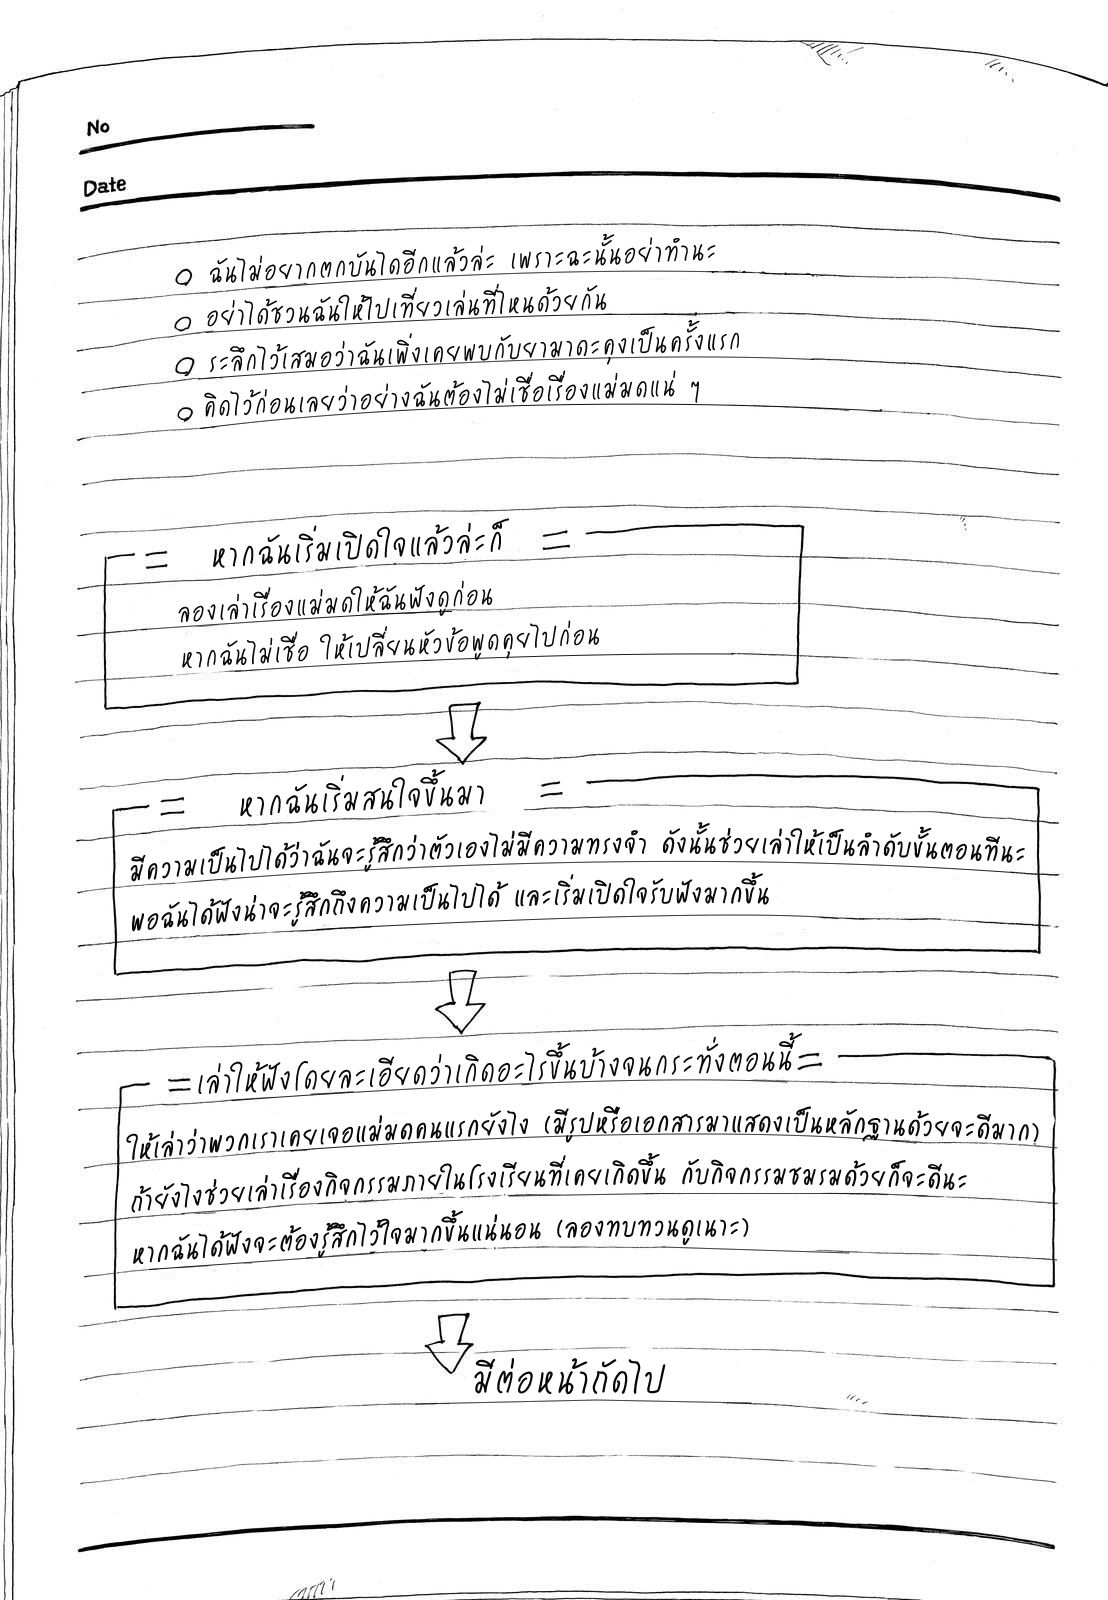 No
Date
○ ฉันไม่อยากตกบันไดอีกแล้วล่ะ เพราะฉะนั้นอย่าทำนะ
○ อย่าได้ชวนฉันให้ไปเที่ยวเล่นที่ไหนด้วยกัน
○ ระลึกไว้เสมอว่าฉันเพิ่งเคยพบกับยามาดะคุงเป็นครั้งแรก
○ คิดไว้ก่อนเลยว่าอย่างฉันต้องไม่เชื่อเรื่องแม่มดแน่ ๆ
= หากฉันเริ่มเปิดใจแล้วล่ะก็ =
ลองเล่าเรื่องแม่มดให้ฉันฟังดูก่อน
หากฉันไม่เชื่อ ให้เปลี่ยนหัวข้อพูดคุยไปก่อน
= หากฉันเริ่มสนใจขึ้นมา =
มีความเป็นไปได้ว่าฉันจะรู้สึกว่าตัวเองไม่มีความทรงจำ ดังนั้นช่วยเล่าให้เป็นลำดับขั้นตอนทีนะ
พอฉันได้ฟังน่าจะรู้สึกถึงความเป็นไปได้ และเริ่มเปิดใจรับฟังมากขึ้น
=เล่าให้ฟังโดยละเอียดว่าเกิดอะไรขึ้นบ้างจนกระทั่งตอนนี้=
ให้เล่าว่าพวกเราเคยเจอแม่มดคนแรกยังไง (มีรูปหรือเอกสารมาแสดงเป็นหลักฐานด้วยจะดีมาก)
ถ้ายังไงช่วยเล่าเรื่องกิจกรรมภายในโรงเรียนที่เคยเกิดขึ้น กับกิจกรรมชมรมด้วยก็จะดีนะ
หากฉันได้ฟังจะต้องรู้สึกไว้ใจมากขึ้นแน่นอน (ลองทบทวนดูเนาะ)
มีต่อหน้าถัดไป